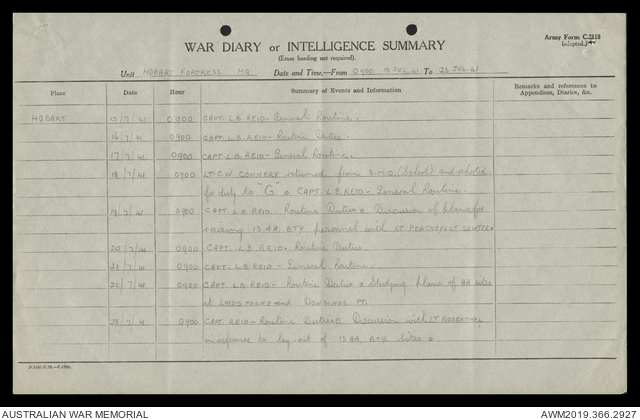 Army Form C.2118
(adapted.)
WAR DIARY or INTELLIGENCE SUMMARY
(Erase heading not required).
Unit HOBART FORTRESS HQ Date and Time:—From 0900 15 JUL 41 To 23 JUL 41
Place Date Hour Summary of Events and Information Remarks and references to Appendices, Diaries, &c.
HOBART 15/7/41 0900 CAPT. L.B. REID - General Routine.
16/7/41 0900 CAPT. L.B. REID - Routine Duties.
17/7/41 0900 CAPT. L.B. REID - General Routine.
18/7/41 0900 LT. C.W. CONNERY returned from S.M.D. (School) and reported
for duty to "G" CAPT. L.B. REID - General Routine.
19/7/41 0900 CAPT. L.B. REID. Routine Duties Discussion of plans for
training 13 AA. BTY personnel with LT
20/7/41 0900 CAPT. L.B. REID - Routine Duties.
21/7/41 0900 CAPT. L.B. REID - General Routine.
22/7/41 0900 CAPT. L.B. REID - Routine Duties Studying plans of AA sites
at and
23/7/41 0900 CAPT. REID - Routine Duties Discussion with LT. ROSENTHAL
in reference to lay-out of 13 AA. BTY Sites
AUSTRALIAN WAR MEMORIAL
AWM2019.366.2927